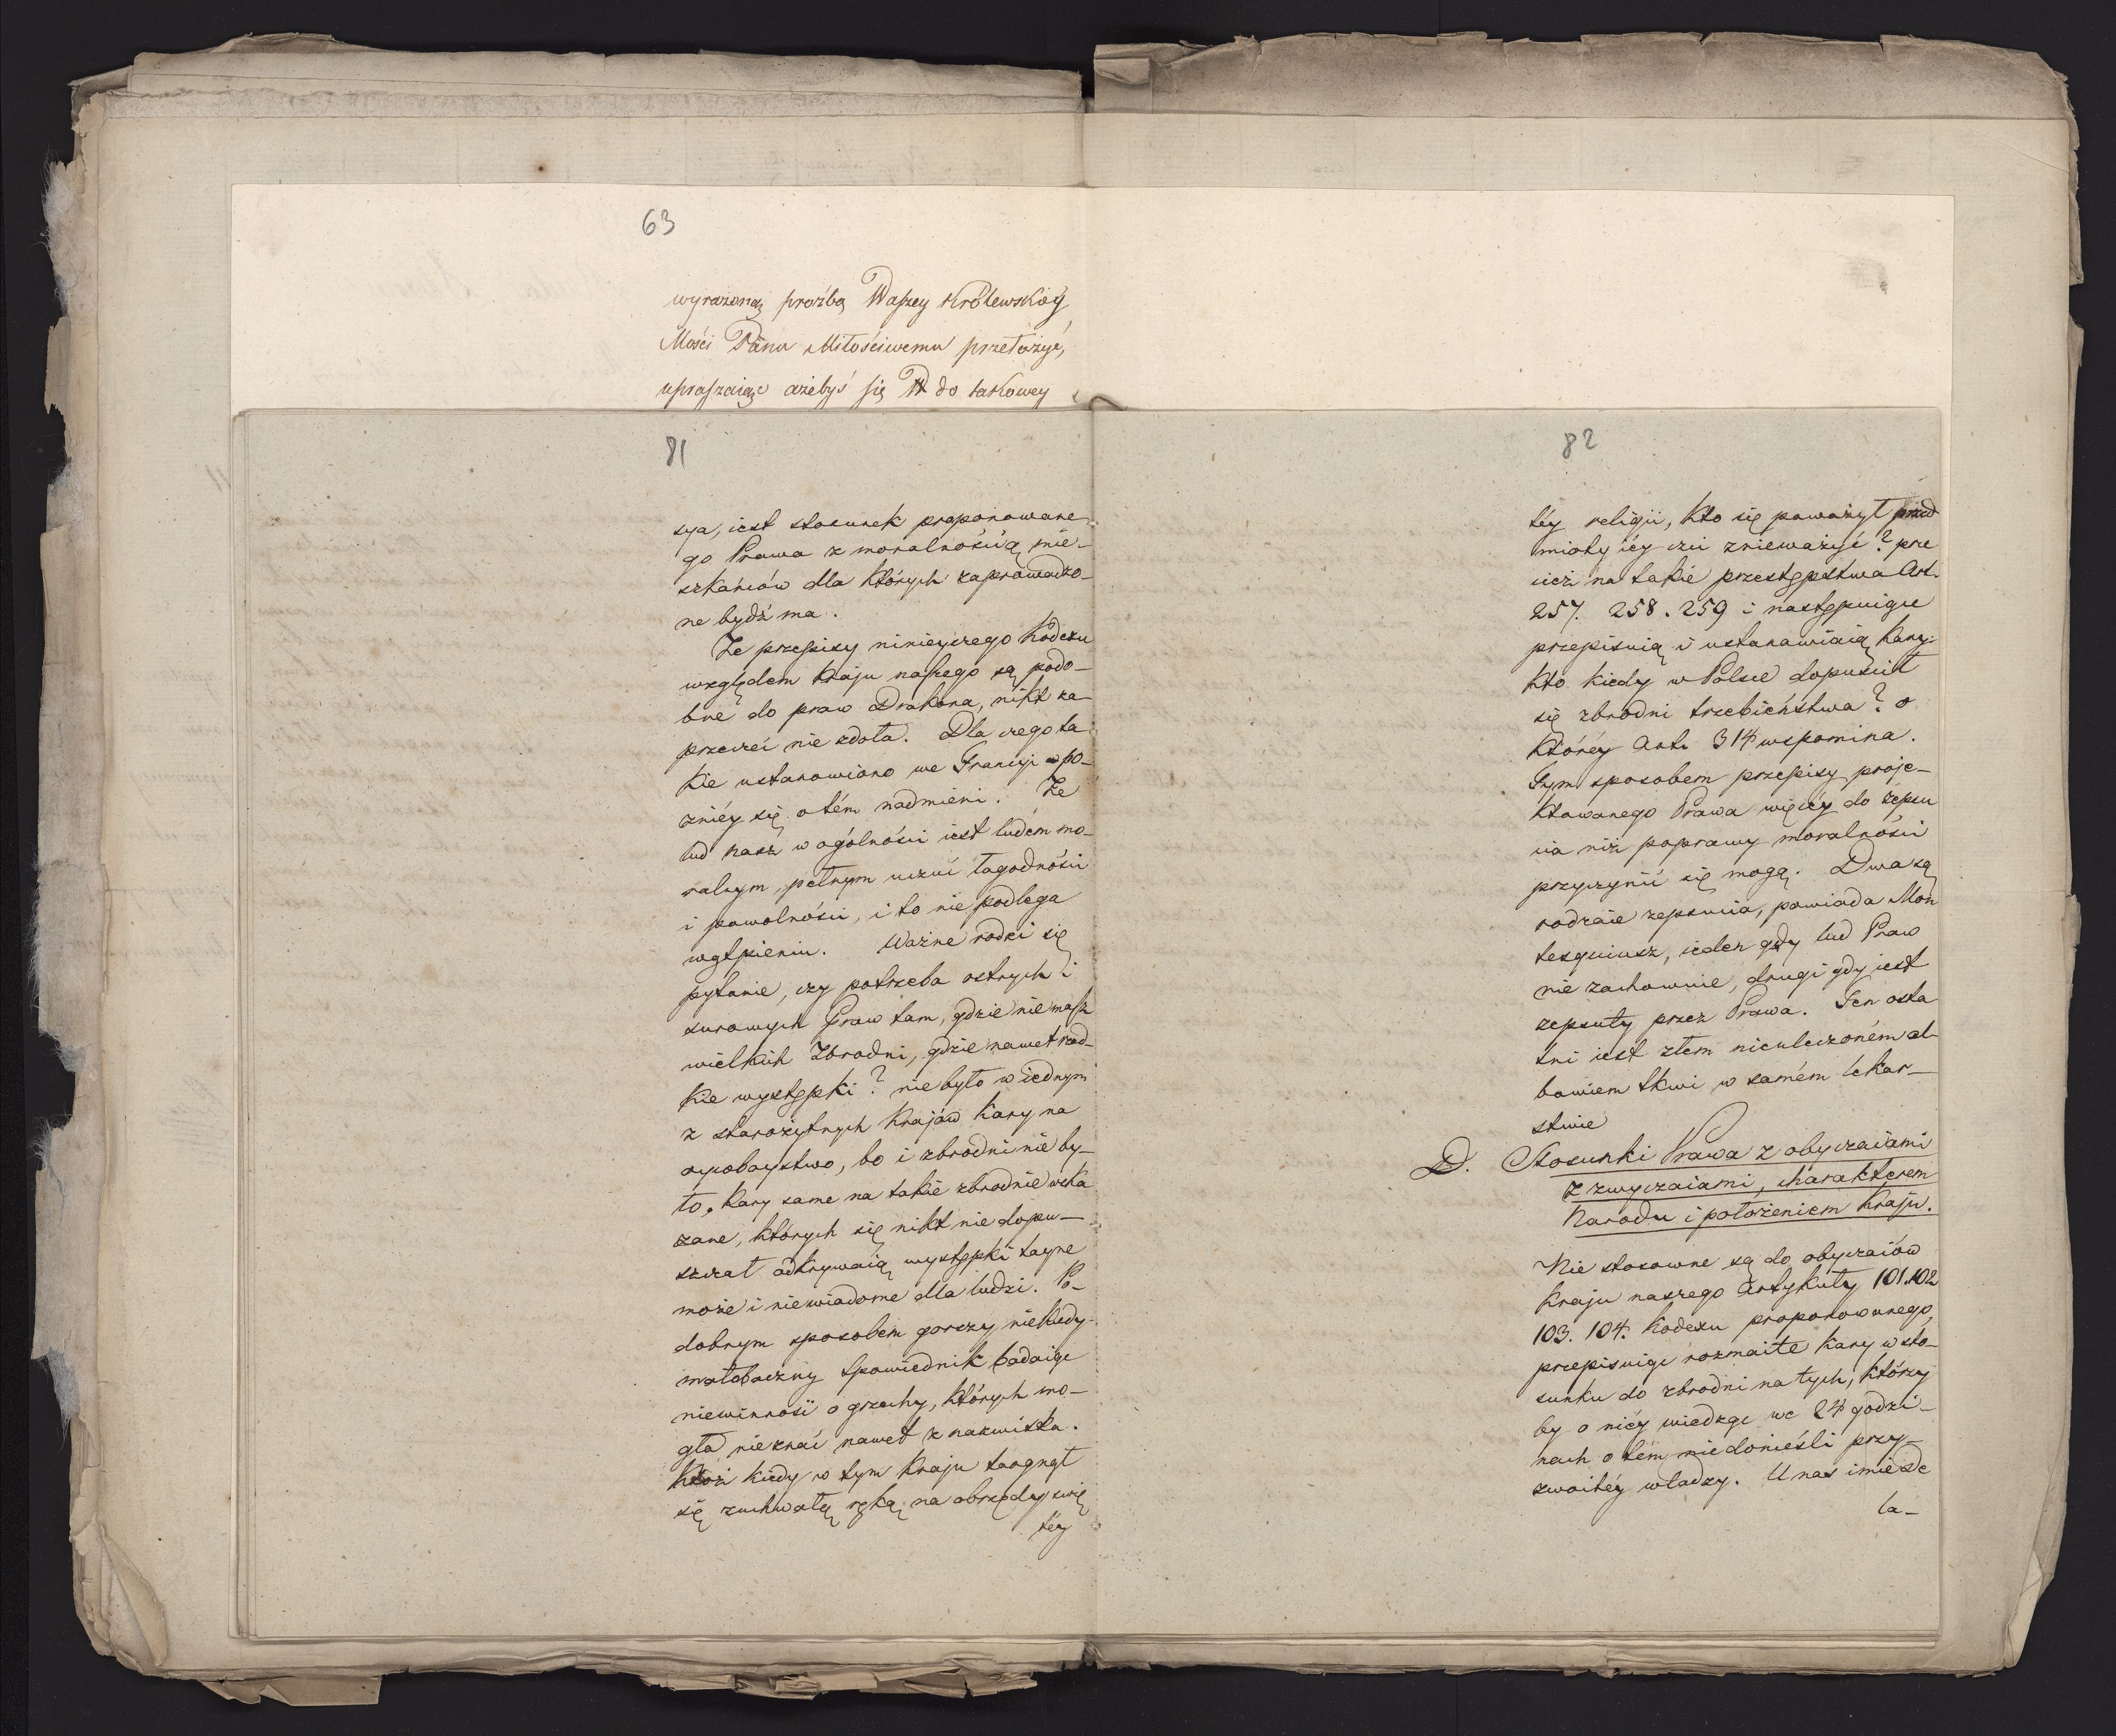 63
wyrażoną proźbą Waszey Królewskiey
Mości Panu Miłościwemu przełożyć,
upraszaiąc ażebyś się W do takowey
81
sya, iest stosunek proponowane-
go Prawa z moralnością mie-
szkańców dla których zaprowadzo-
ne bydź ma.
Że przepisy ninieyszego Kodexu
względem Kraju naszego są podo-
bne do praw Drakona, nikt za-
przeczeć nie zdoła. Dla czego ta-
kie ustanowiono we Francyi po-
zniéy się o tém nadmieni. Że
lud nasz w ogólności iest ludem mo-
ralnym, pełnym uczuć łagodności
i powolności, i to nie podlega
wątpieniu. Ważne rodzi się
pytanie, czy potrzeba ostrych i
surowych Praw tam, gdzie nie masz
wielkich Zbrodni, gdzie nawet rzad-
kie występki? nie było w iednym
z starożytnych Krajów Kary na
oycobóystwo, bo i zbrodni nie by-
ło. Kary same na takie zbrodnie wska
zane, których się nikt nie dopu-
szczał odkrywaią występki tayne
może i niewiadome dla ludzi. Po-
dobnym sposobem gorszy niekiedy
małobaczny Spowiednik badaiąc
niewinność o grzechy, których mo-
gła nieznać nawet z nazwiska.
Któż kiedy w tym Kraju targnął
się zuchwałą ręką na obrzędy swię
téy
82
téy religii, Kto się poważył przed
mioty iéy czci znieważyć? prze
cież na takie przestępstwa Art.
257. 258. 259 i następuiące
przepisuią i ustanawiaią Kary:
Kto kiedy w Polsce dopuścił
się zbrodni trzebieństwa? o
któréy Art. 314 wspomina.
Tym sposobem przepisy proje-
ktowanego Prawa więcéy do zepsu
cia niż poprawy moralności
przyczynić się mogą. Dwa są
rodzaie zepsucia, powiada Mon
tesquiusz, ieden gdy lud Praw
nie zachowuie, drugi gdy iest
zepsuty przez Prawa. Ten osta
tni iest złem nieuleczoném al-
bowiem tkwi w samém lekar-
stwie
D. Stosunki Prawa z obyczaiami
z zwyczaiami, charakterem
Narodu i położeniem Kraju.
Nie stosowne są do obyczaiów
Kraju naszego Artykuły 101. 102
103. 104. Kodexu proponowanego,
przepisuiąc rozmaite Kary w sto-
sunku do zbrodni na tych, którzy
by o niéy wiedząc we 24 godzi-
nach o tém niedonieśli przy-
zwoitéy władzy. U nas imie de
la-